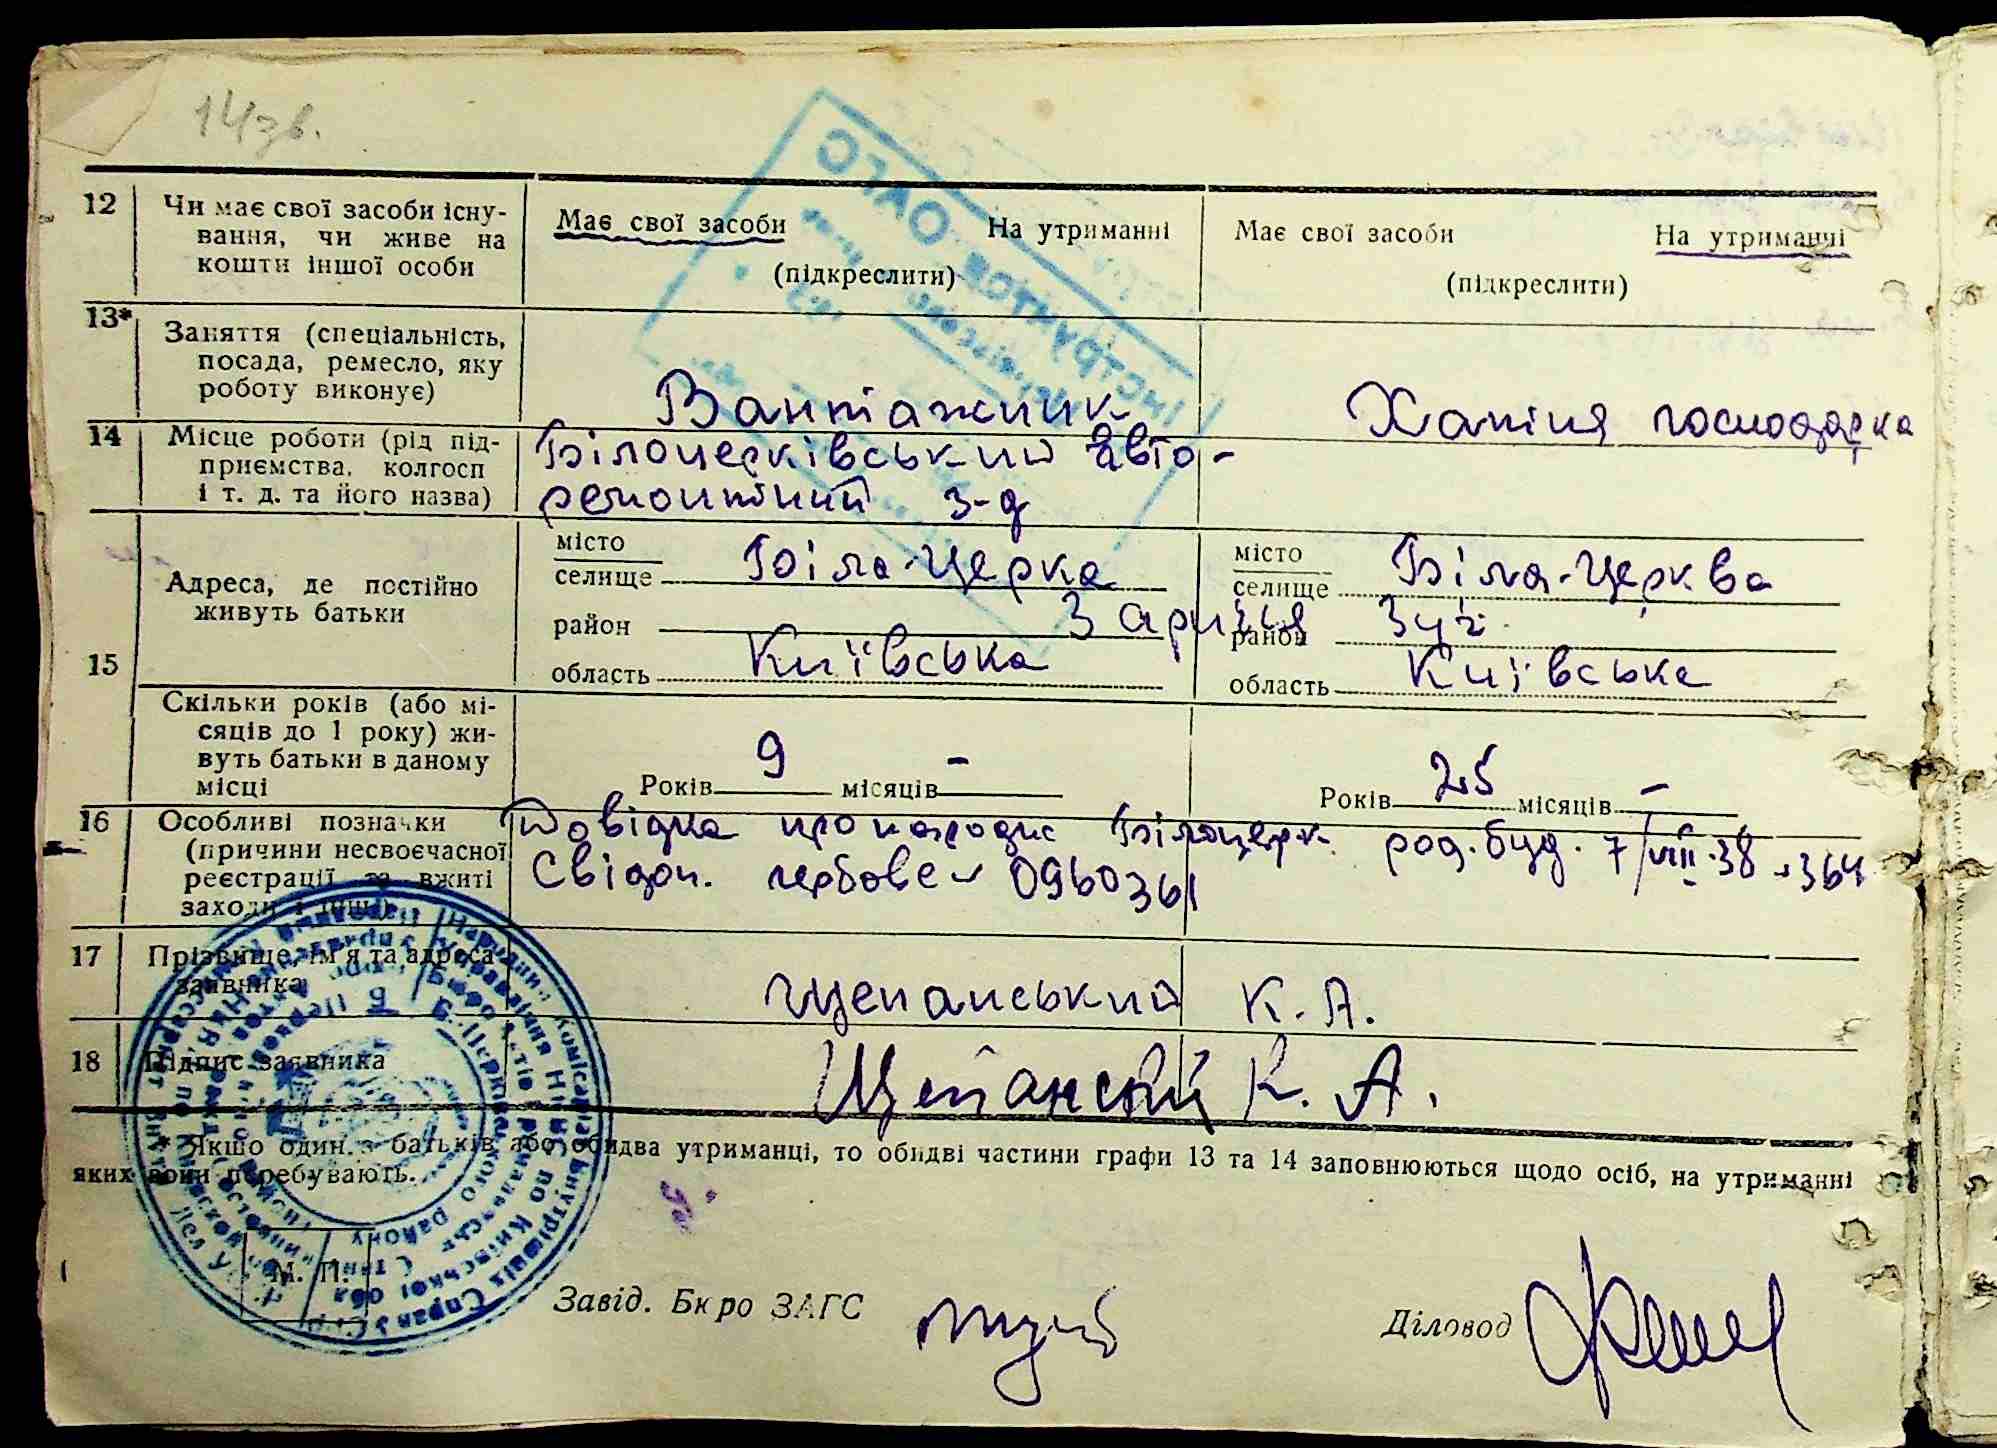 14зв.
12 Чи має свої засоби існу- Має свої засоби На утриманні Має свої засоби На утриманні
вання, чи живе на
кошти іншої особи (підкреслити) (підкреслити)
13* Заняття (спеціальність,
посада, ремесло, яку
роботу виконує) Вантажник Хатня господарка
14 Місце роботи (рід під- Білоцерківський авто-
приємства, колгосп
і т. д. та його назва) ремонтний з-д
15 Адреса, де постійно
живуть батьки
місто Біла-Церква
селище
район
область Київська
місто Біла-Церква
селище
район
область Київська
Скільки років (або мі-
сяців до 1 року) жи-
вуть батьки в даному
місці Років 9 місяців - Років 25 місяців -
16 Особливі позначки Довідка про народж Білоцерк. род. буд. 7/VIII.38 364
(причини несвоєчасної
реєстрації та вжиті Свідоц. гербове 0960361
заходи і інш.)
17 Прізвище, ім'я та адреса
заявника Щепанський К. А.
18 Підпис заявника Щепанській К. А.
* Якщо один з батьків або обидва утриманці, то обидві частини графи 13 та 14 заповнюються щодо осіб, на утриманні
яких вони перебувають.
М. П.
Завід. Бюро ЗАГС Діловод
Інструктор ОАГС